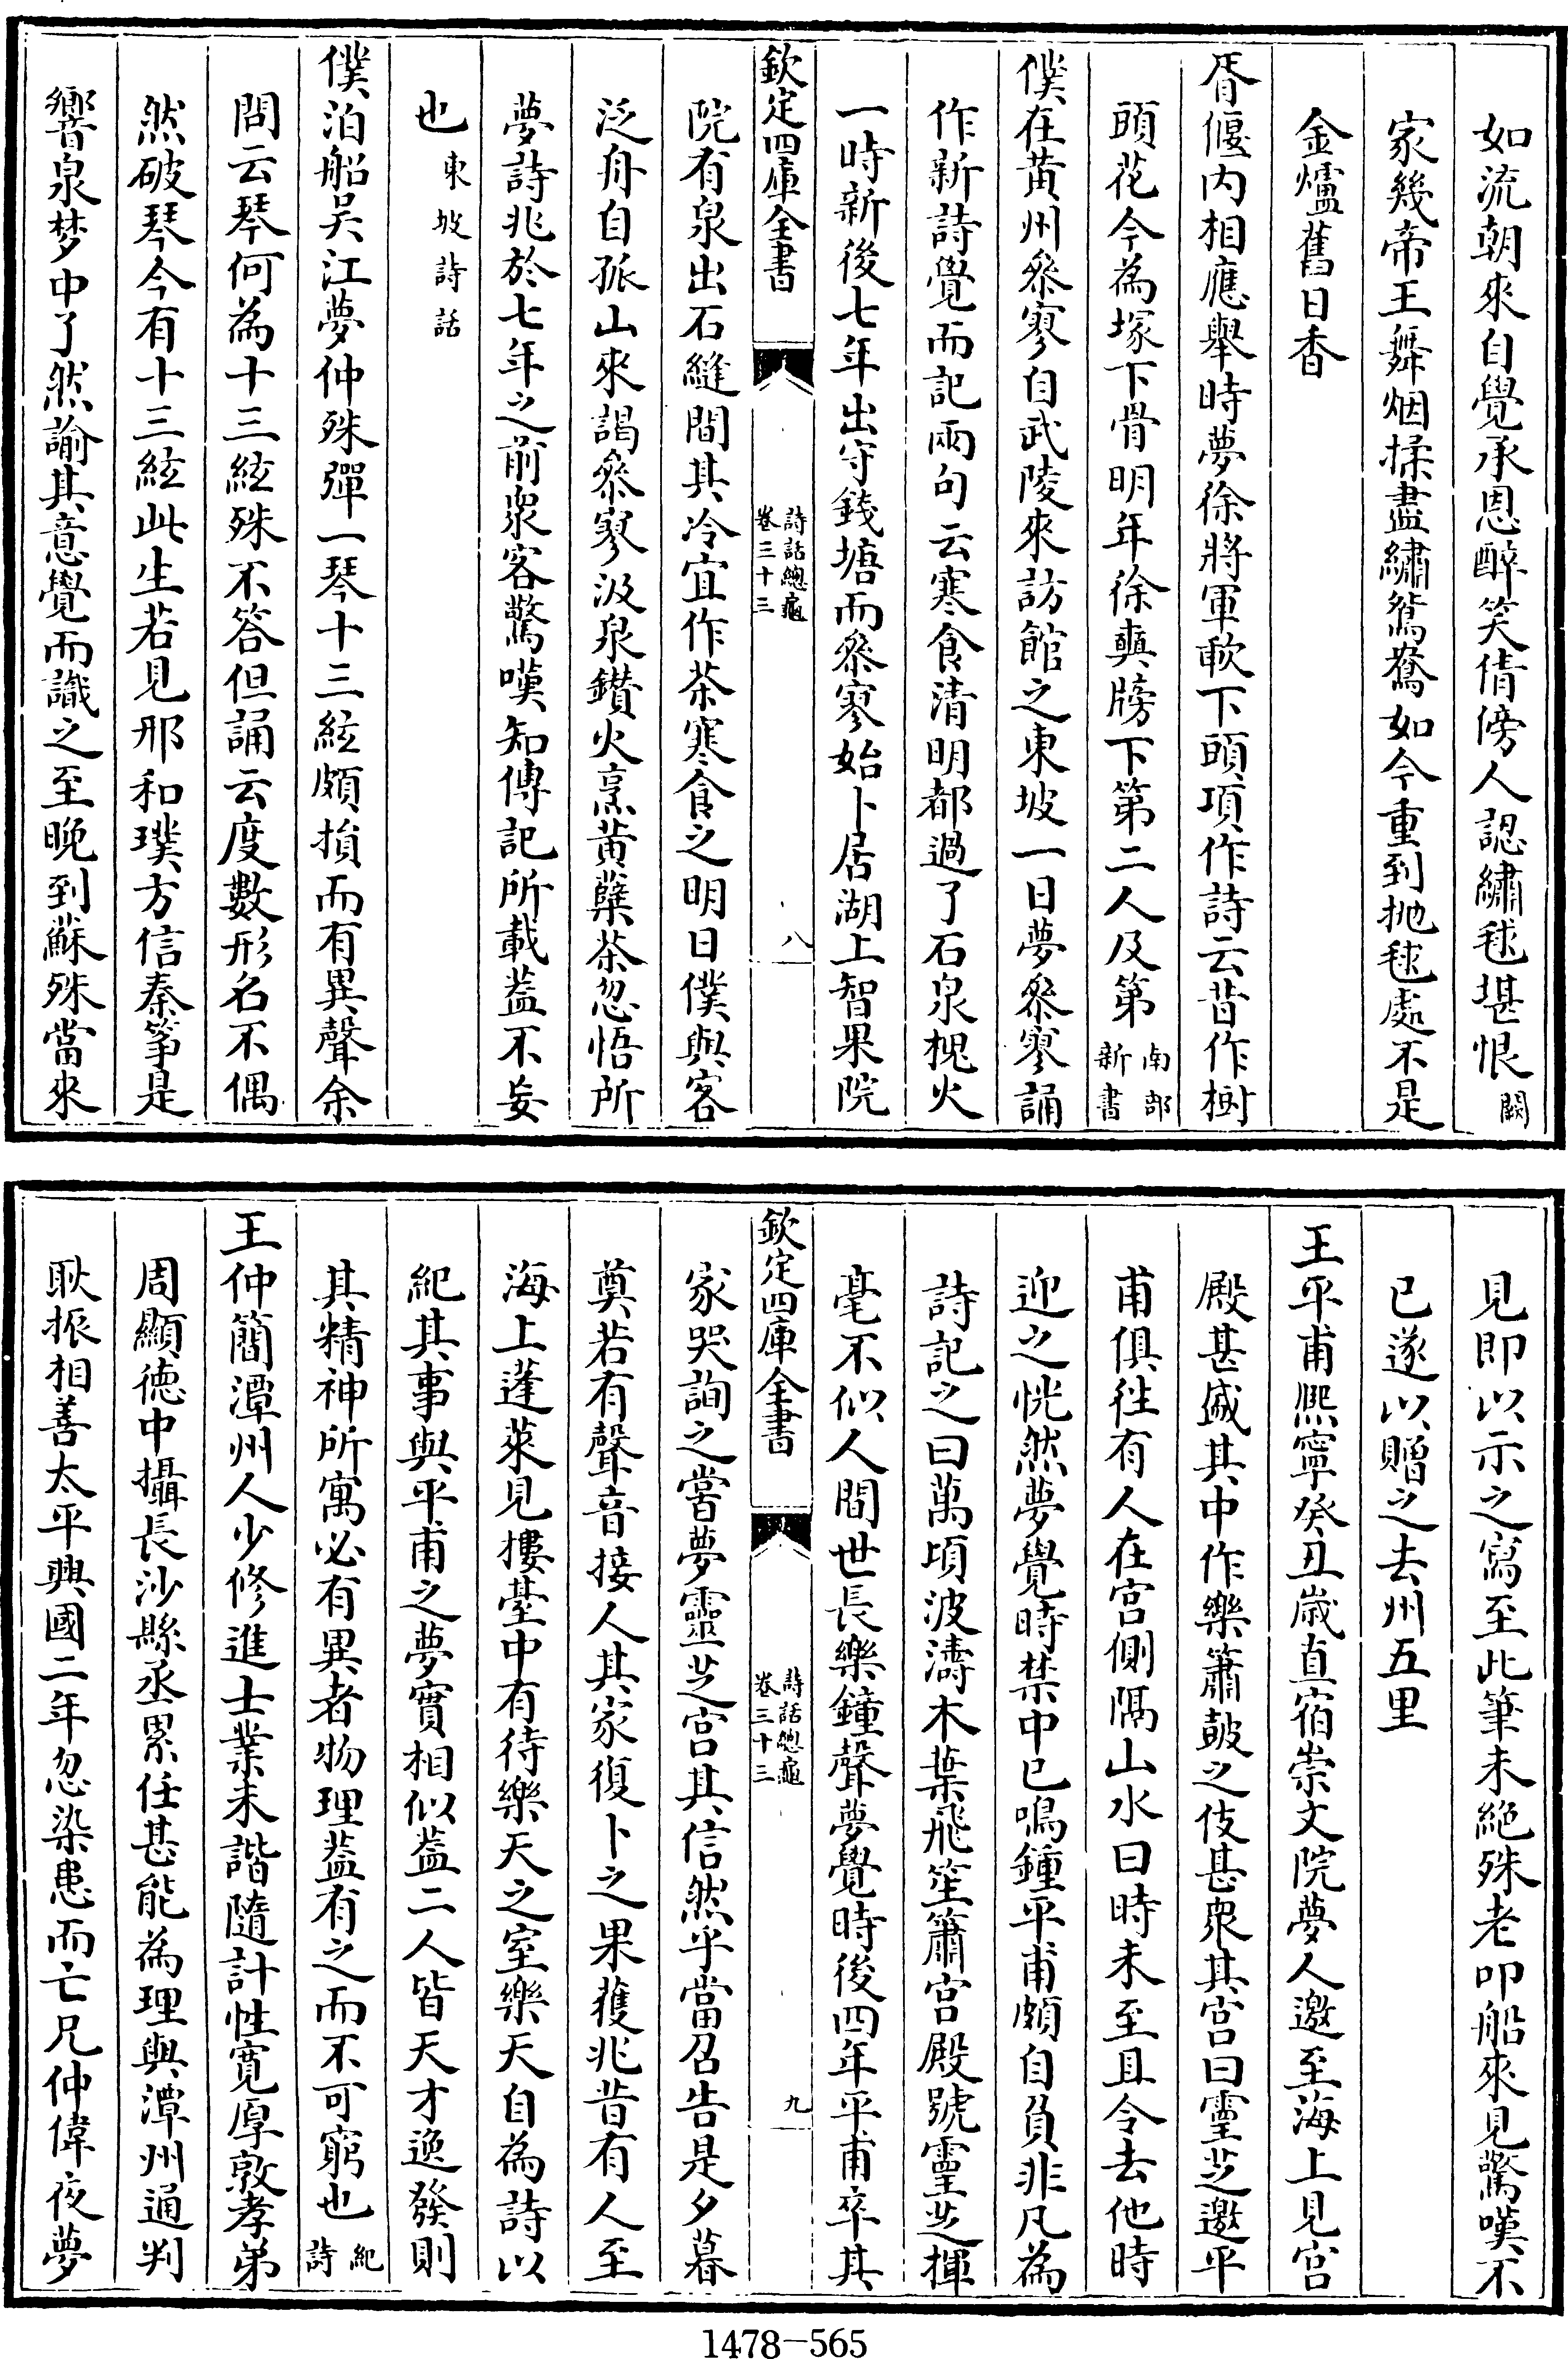 如流朝來自覺承恩醉笑倩傍人認繡毬堪恨闕
家幾帝王舞烟揉盡繡鴛鴦如今重到抛毬處不是
金爐舊日香
胥偃内相應舉時夢徐將軍軟下頭項作詩云昔作樹
頭花今為塚下骨明年徐奭牓下第二人及第南部新書
僕在黄州叅寥自武陵來訪館之東坡一日夢叅寥誦
作新詩覺而記兩句云寒食清明都過了石泉槐火
一時新後七年出守錢塘而叅寥始卜居湖上智果院
欽定四庫全書
詩話總龜
卷三十三
八
院有泉出石縫間其冷宜作茶寒食之明日僕與客
泛舟自孤山來謁叅寥汲泉鑚火烹黄蘗茶忽悟所
夢詩兆於七年之前衆客驚嘆知傳記所載葢不妄
也東坡詩話
僕泊船吴江夢仲殊彈一琴十三絃頗損而有異聲余
問云琴何為十三絃殊不答但誦云度數形名不偶
然破琴今有十三絃此生若見邢和璞方信秦筝是
響泉梦中了然諭其意覺而識之至晩到蘇殊當來
見即以示之寫至此筆未絶殊老叩船來見驚嘆不
已遂以贈之去州五里
王平甫熙寧癸丑嵗直宿崇文院夢人邀至海上見宫
殿甚盛其中作樂簫鼓之伎甚衆其宫曰靈芝邀平
甫俱徃有人在宫側隔山水曰時未至且令去他時
迎之恍然夢覺時禁中已鳴鍾平甫頗自負非凡為
詩記之曰萬頃波濤木葉飛笙簫宫殿號靈芝揮
毫不似人間世長樂鐘聲夢覺時後四年平甫卒其
欽定四庫全書
詩話總龜
卷三十三
九
家哭詢之嘗夢靈芝宫其信然乎當召告是夕暮
奠若有聲音接人其家復卜之果獲兆昔有人至
海上蓬萊見摟臺中有待樂天之室樂天自為詩以
紀其事與平甫之夢實相似葢二人皆天才逸發則
其精神所寓必有異者物理葢有之而不可窮也紀詩
王仲簡潭州人少修進士業未諧隨計性寛厚敦孝弟
周顯徳中攝長沙縣丞累任甚能為理與潭州通判
耿振相善太平興國二年忽染患而亡兄仲偉夜夢
1478-565